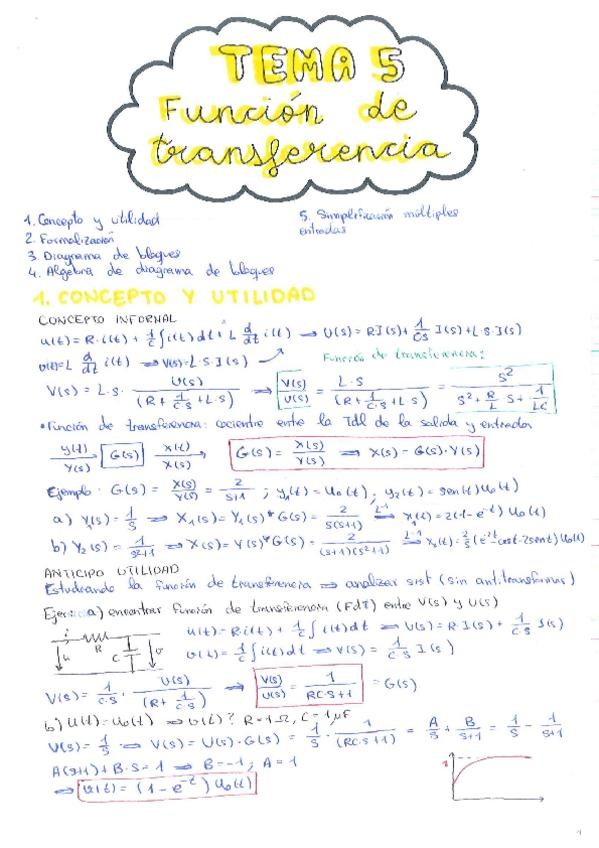 TEMA 5
Función de
transferencia
1. Concepto y utilidad
2. Formalización
3. Diagrama de bloques
4. Algebra de diagrama de bloques
5. Simplificación múltiples
entradas
1. CONCEPTO Y UTILIDAD
CONCEPTO INFORMAL
u(t) = R·i(t) + 1/C ∫i(t)dt + L d/dt i(t) ⟹ U(s) = RI(s) + 1/CS I(s) + L·S·I(s)
v(t) = L d/dt i(t) ⟹ V(s) = L·S·I(s)
Función de transferencia:
V(s) = L·S· U(s)/(R + 1/C·S + L·S) ⟹ V(s)/U(s) = L·S/(R + 1/C·S + L·S) = S²/(S² + R/L S + 1/LC)
•Función de transferencia: cociente entre la TdL de la salida y entrada
y(t) Y(s) G(s) x(t) X(s) G(s) = X(s)/Y(s) ⟹ X(s) = G(s)·Y(s)
Ejemplo: G(s) = X(s)/Y(s) = 2/S+1 ; y₁(t) = u₀(t) ; y₂(t) = sen(t)u₀(t)
a) Y₁(s) = 1/S ⟹ X₁(s) = Y₁(s)*G(s) = 2/S(S+1) L⁻¹⟹ x₁(t) = 2(1-e⁻ᵗ) u₀(t)
b) Y₂(s) = 1/S²+1 ⟹ X(s) = Y(s)*G(s) = 2/(S+1)(S²+1) L⁻¹⟹
ANTICIPO UTILIDAD
Estudiando la función de transferencia ⟹ analizar sist (sin antitransformar)
a) encontrar función de transferencia (FdT) entre V(s) y U(s)
i R C u v
u(t) = Ri(t) + 1/C ∫i(t)dt ⟹ U(s) = R·I(s) + 1/C·S I(s)
v(t) = 1/C ∫i(t)dt ⟹ V(s) = 1/C·S I(s)
V(s) = 1/C·S · U(s)/(R + 1/C·S) ⟹ V(s)/U(s) = 1/RC·S+1 = G(s)
b) u(t) = u₀(t) ⟹ v(t)? R = 1Ω, C = 1μF
U(s) = 1/S ⟹ V(s) = U(s)·G(s) = 1/S · 1/(RCS+1) = A/S + B/S+1 = 1/S - 1/S+1
A(s+1) + B·S = 1 ⟹ B = -1 ; A = 1
⟹ v(t) = (1 - e⁻ᵗ) u₀(t)
1